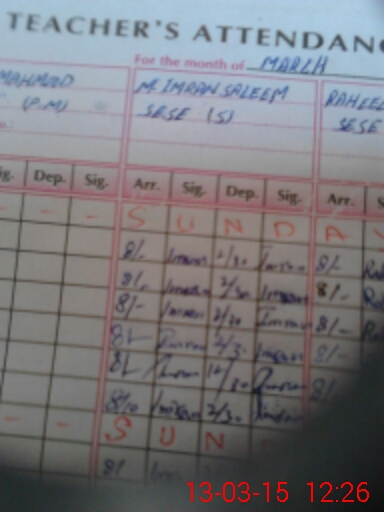 TEACHER'S ATTENDANC
For the month of MARCH
MAHMUD M. IMRAN SALEEM RAHEE
(P.M) SESE (S) SESE
ig. Dep. Sig. Arr. Sig. Dep. Sig. Arr. S
- - - S U N D A Y
8/- Imran 2/30 Imran 8/-
8/- Imran 2/30 Imran 8/-
8/- Imran 2/30 Imran 8/-
8/- Imran 2/3- Imran 8/-
8/- Imran 12/30 Imran 8/
8/10 Imran 2/30 Imran
- - S U N
8/
13-03-15 12:26